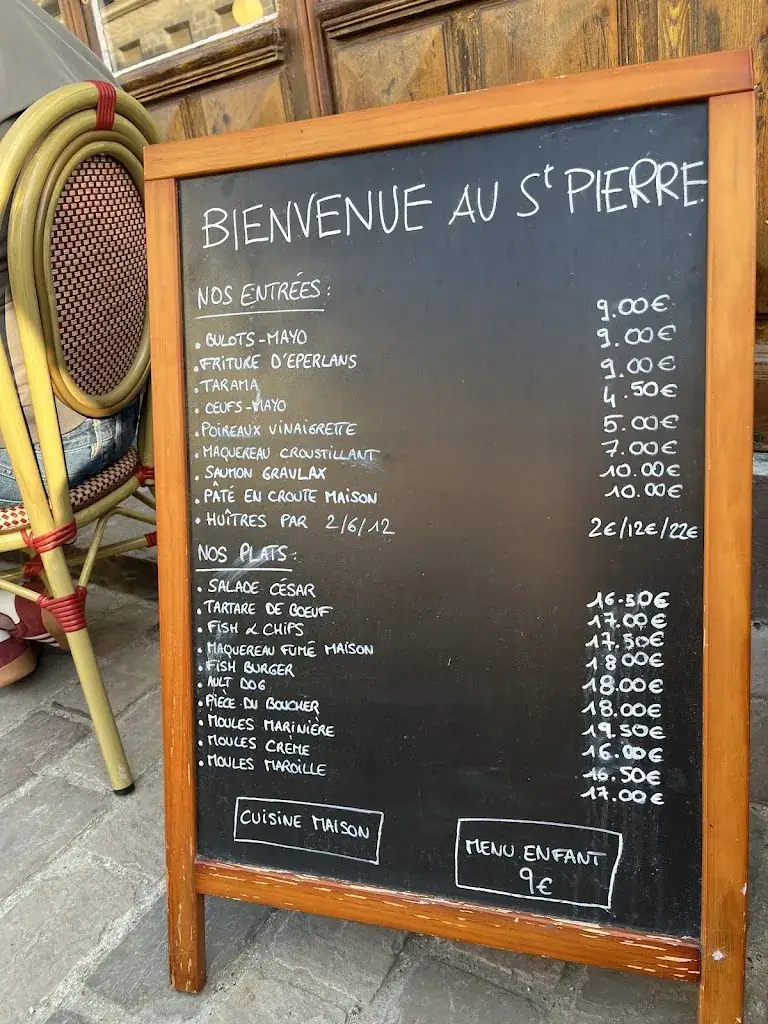 BIENVENUE AU St PIERRE
NOS ENTRÉES:
• BULOTS-MAYO 9.00€
• FRITURE D'EPERLANS 9.00€
• TARAMA 9.00€
• OEUFS-MAYO 4.50€
• POIREAUX VINAIGRETTE 5.00€
• MAQUEREAU CROUSTILLANT 7.00€
• SAUMON GRAVLAX 10.00€
• PÂTÉ EN CROUTE MAISON 10.00€
• HUÎTRES PAR 2/6/12 2€/12€/22€
NOS PLATS:
• SALADE CÉSAR 16.50€
• TARTARE DE BOEUF 17.00€
• FISH & CHIPS 17.50€
• MAQUEREAU FUMÉ MAISON 18.00€
• FISH BURGER 18.00€
• AULT DOG 18.00€
• PIÈCE DU BOUCHER 19.50€
• MOULES MARINIÈRE 16.00€
• MOULES CRÈME 16.50€
• MOULES MAROILLE 17.00€
CUISINE MAISON
MENU ENFANT
9€